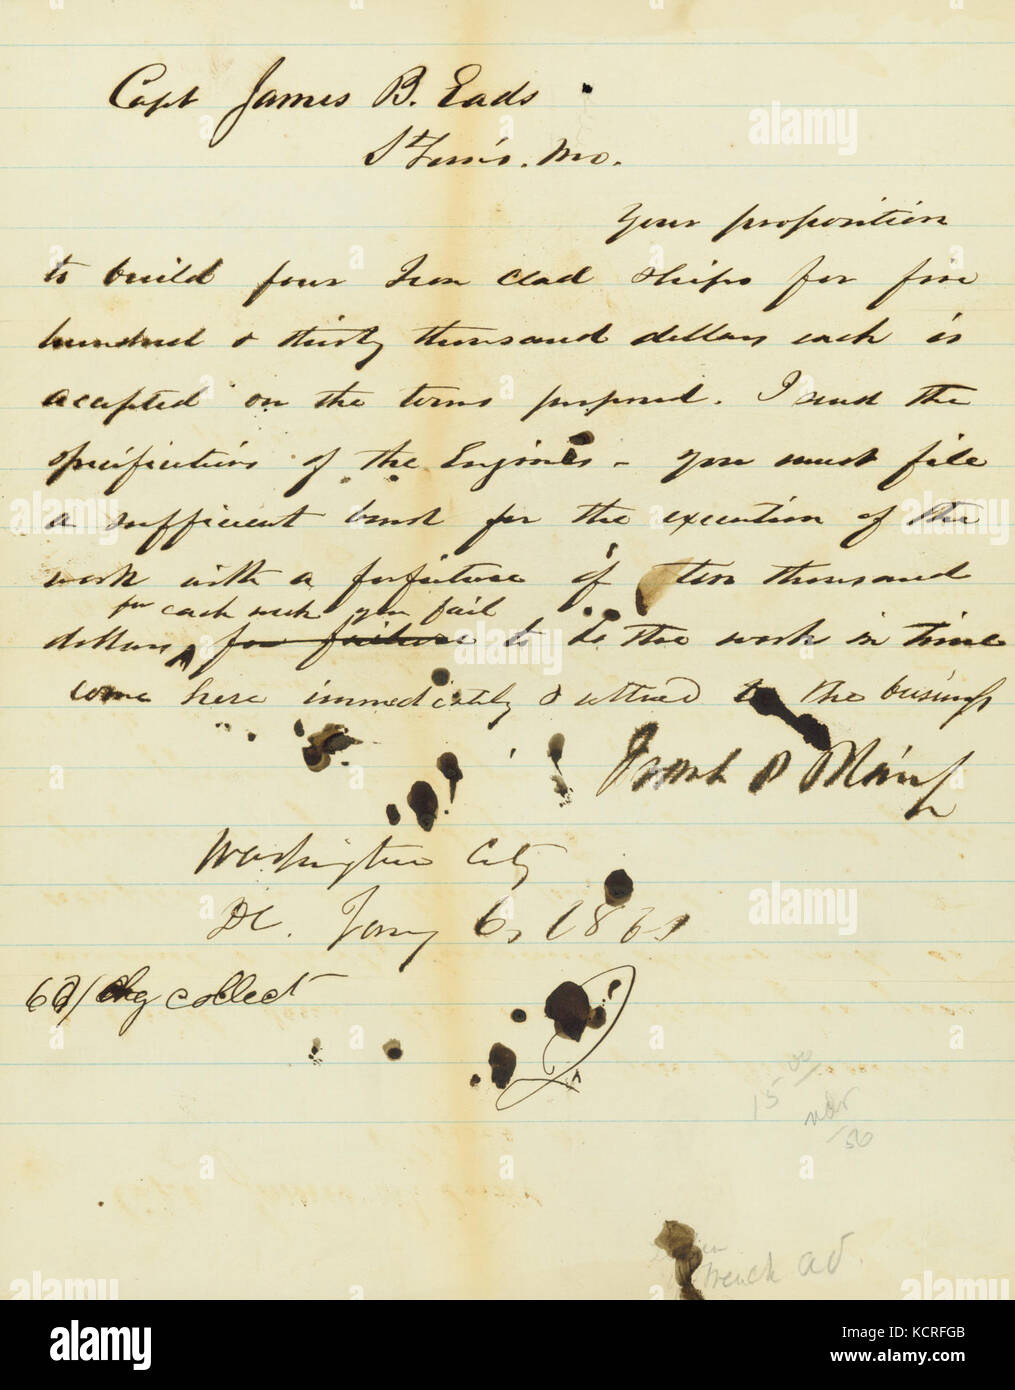 Capt James B. Eads
St Louis. Mo.
Your proposition
to build four Iron clad ships for five
hundred & thirty thousand dollars each is
accepted on the terms proposed. I send the
specifications of the Engines - you must file
a sufficient bond for the execution of the
work with a forfeiture of ten thousand
for each week you fail
dollars for failure to do the work in time
come here immediately & attend to the business
Frank P Blair Jr
Washington City
DC. Jany 6,
62/ chg collect
15 00/
nov
/56
French ad.
alamy
Image ID: KCRFGB
www.alamy.com